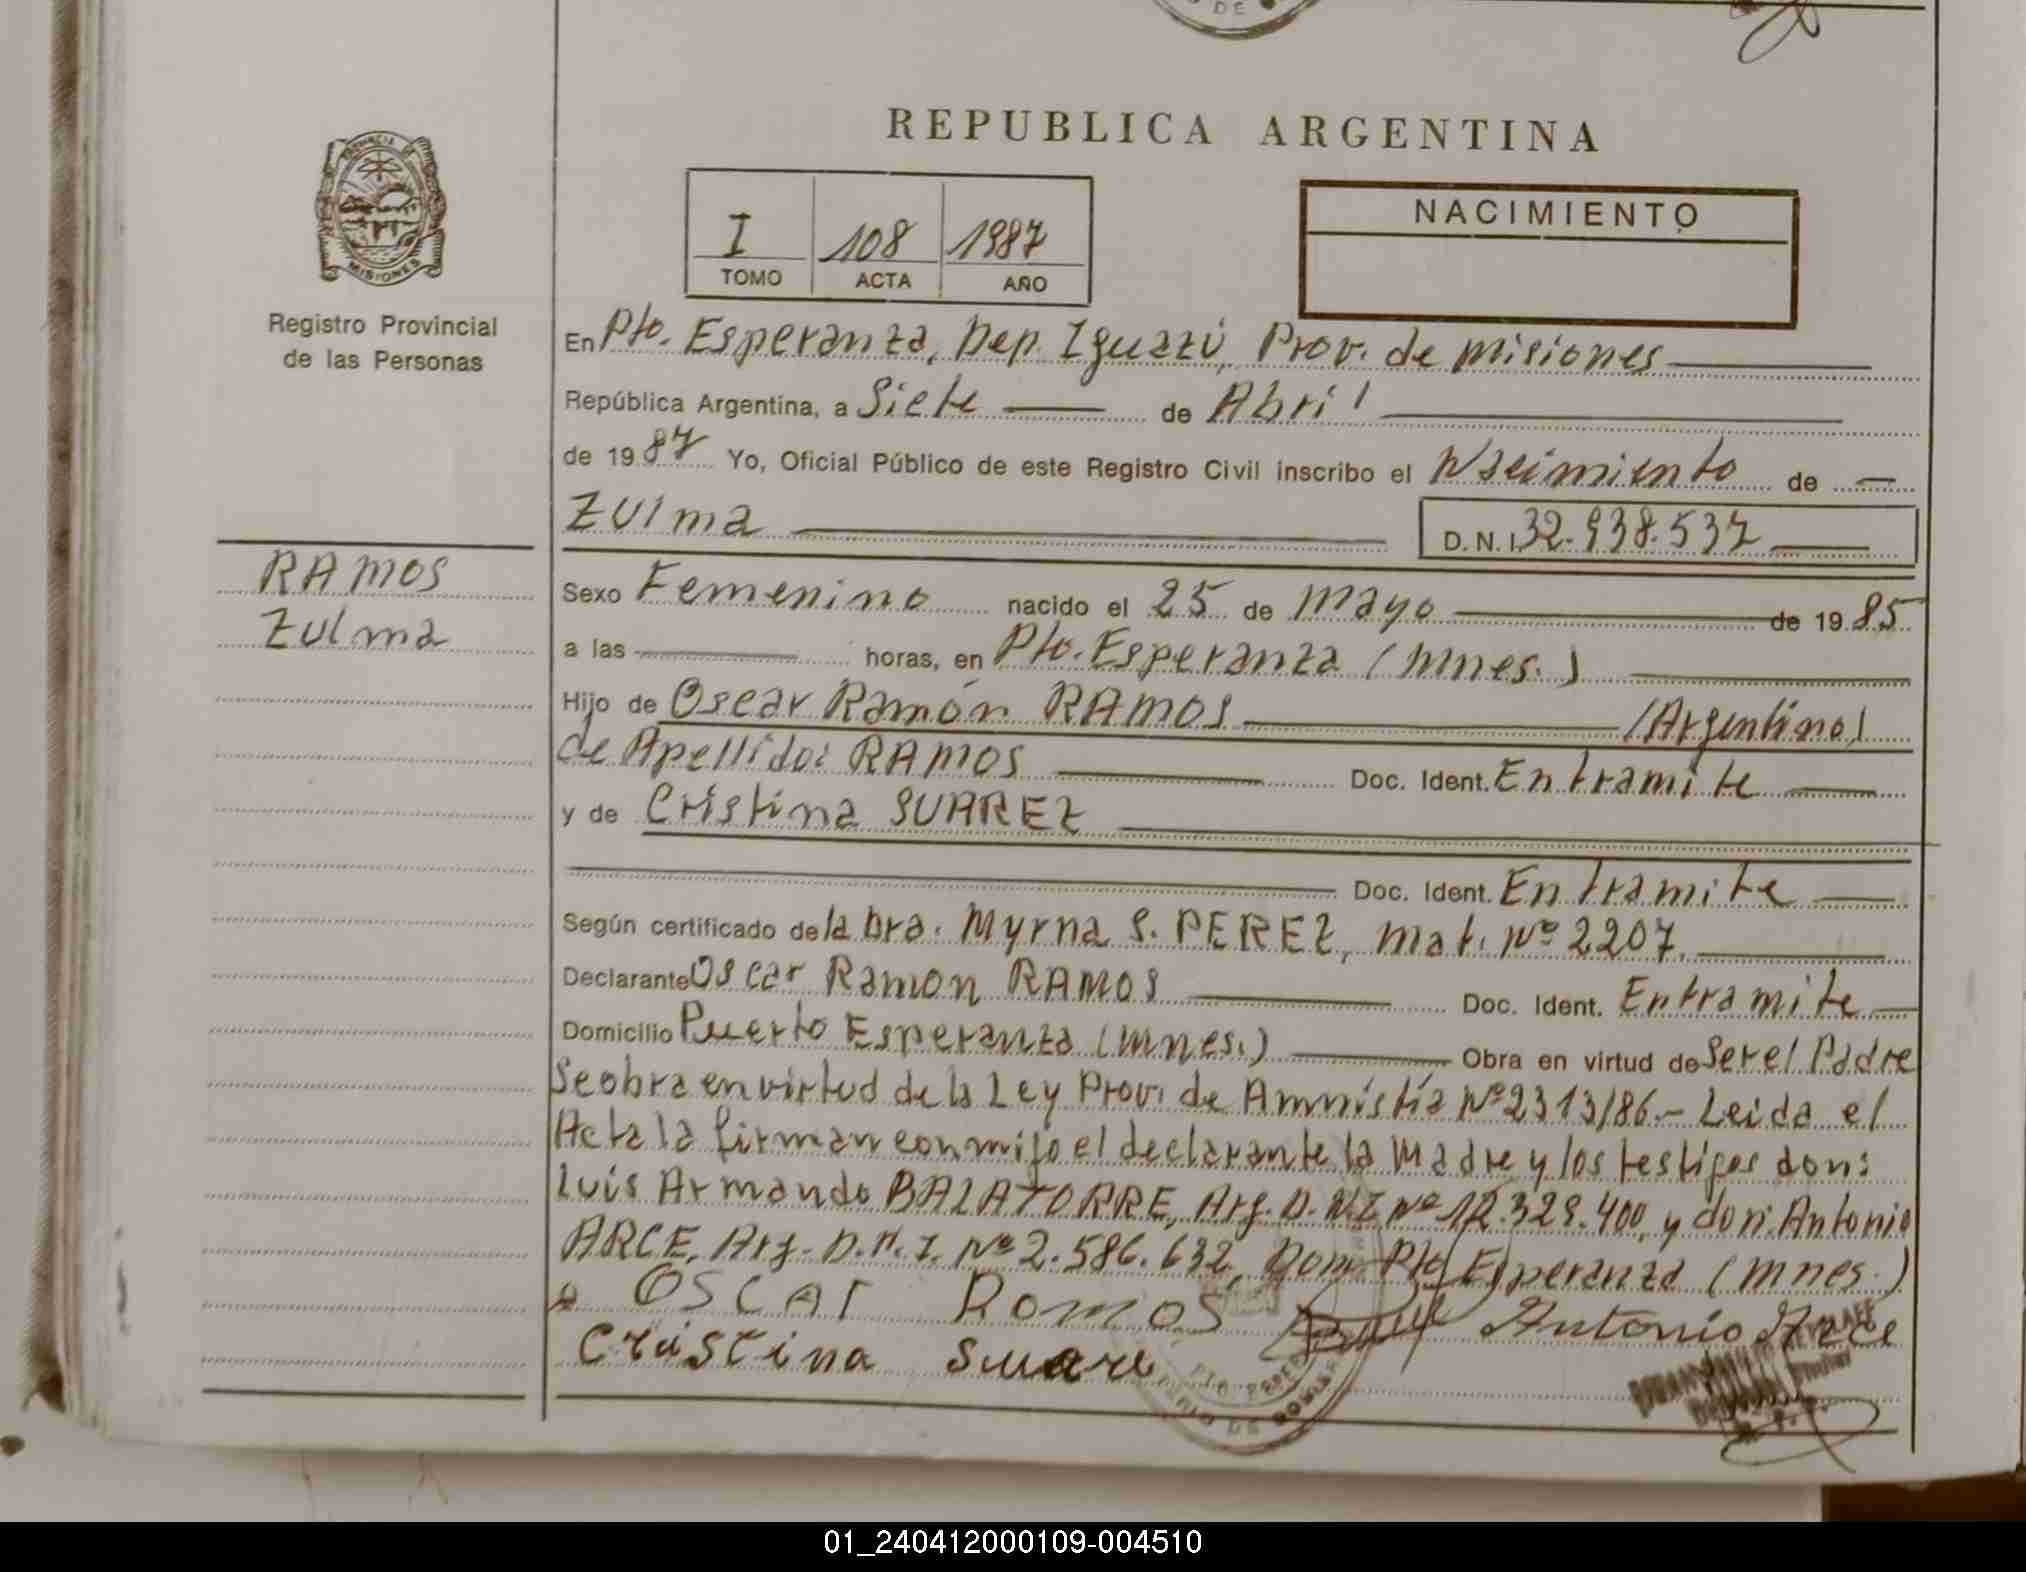 DE
REPUBLICA ARGENTINA
PROVINCIA DE
MISIONES
Registro Provincial
de las Personas
I 108 1987
TOMO ACTA AÑO
NACIMIENTO
En Pto. Esperanza, Dep. Iguazú, Prov. de Misiones
República Argentina, a Siete de Abril
de 1987 Yo, Oficial Público de este Registro Civil inscribo el Nacimiento de
Zulma D.N.I. 32.938.537
RAMOS
Zulma
Sexo Femenino nacido el 25 de Mayo de 1985
a las horas, en Pto. Esperanza (Mnes.)
Hijo de Oscar Ramón RAMOS (Argentino)
de Apellido: RAMOS Doc. Ident. En tramite
y de Cristina SUAREZ
Doc. Ident. En tramite
Según certificado de la Dra. Myrna S. PEREZ, mat. Nº 2207.
Declarante Oscar Ramon RAMOS Doc. Ident. En tramite
Domicilio Puerto Esperanza (Mnes.) Obra en virtud de Ser el Padre
Se obra en virtud de la Ley Prov. de Amnistía Nº 2313/86.- Leida el
Acta la firman conmigo el declarante la Madre y los testigos don:
Luis Armando BALATORRE, Arg. D.N.I. Nº 12.329.400, y don: Antonio
ARCE, Arg. D.N.I. Nº 2.586.632, Dom. Pto. Esperanza (Mnes.)
OSCAR Ramos Antonio Arce
Cristina Suare
01_240412000109-004510